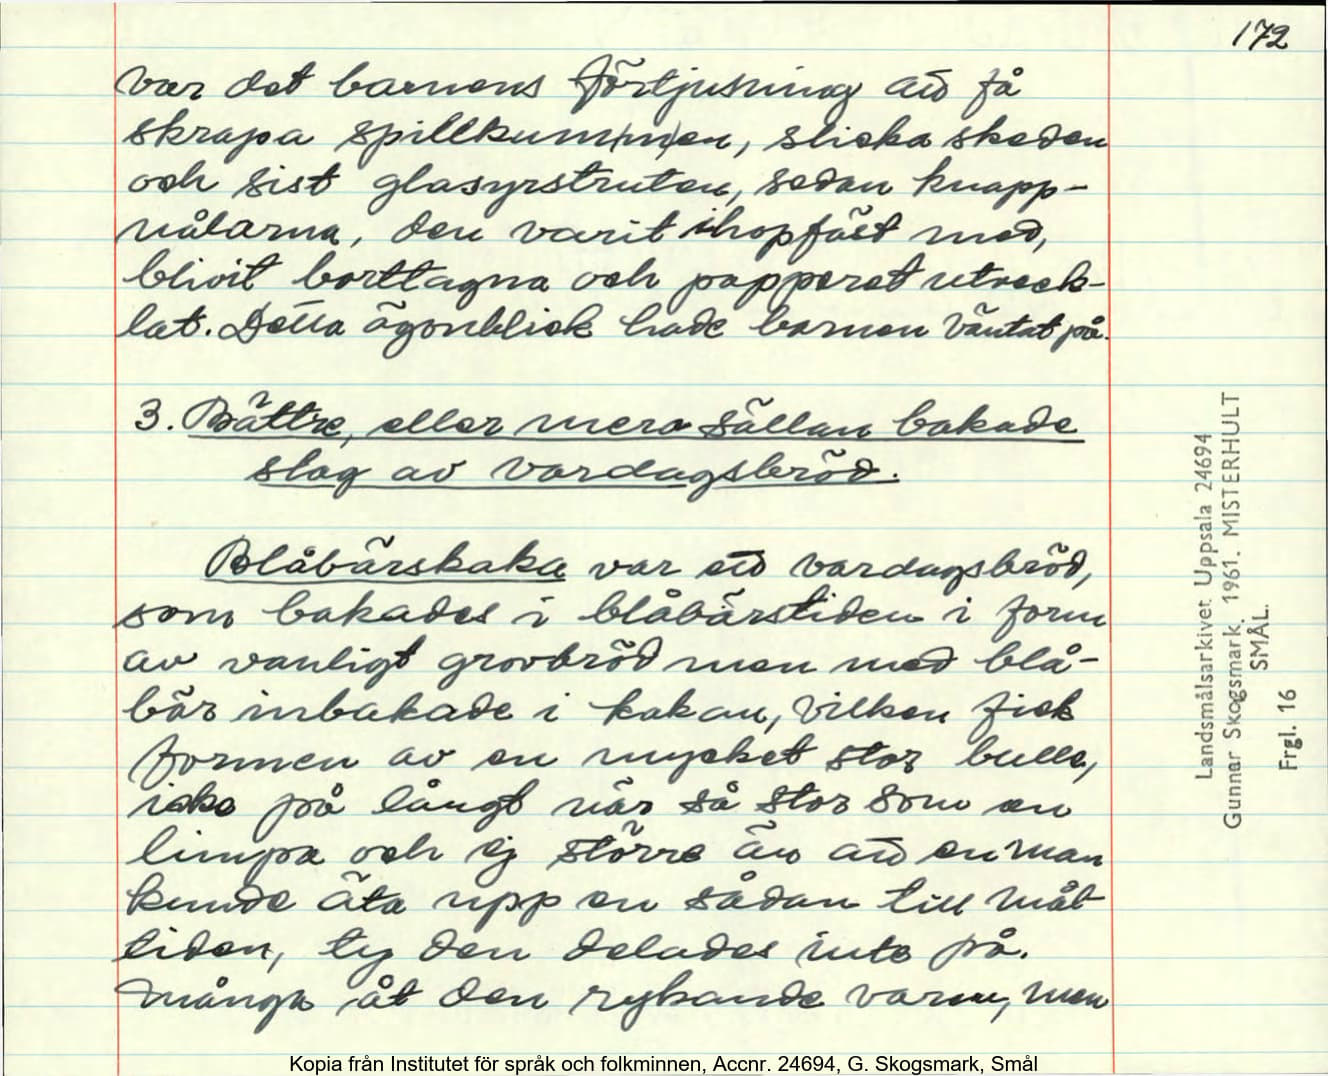 172
var det barnens förtjusning att få
skrapa spillkum(m)en, slicka skeden
och sist glasyrstruten, sedan knapp-
nålarna, den varit ihopfäst med,
blivit borttagna och papperet utveck-
lat. Detta ögonblick hade barnen väntat på.
3. Bättre, eller mera sällan bakade
slag av vardagsbröd.
Blåbärskaka var ett vardagsbröd,
som bakades i blåbärstiden i form
av vanligt grovbröd men med blå-
bär inbakade i kakan, vilken fick
formen av en mycket stor bulle,
icke på långt när så stor som en
limpa och ej större än att en man
kunde äta upp en sådan till mål-
tiden, ty den delades inte på.
Många åt den rykande varm, men
Landsmålsarkivet Uppsala 24694
Gunnar Skogsmark. 1961. MISTERHULT
SMÅL.
Frgl. 16
Kopia från Institutet för språk och folkminnen, Accnr. 24694, G. Skogsmark, Smål